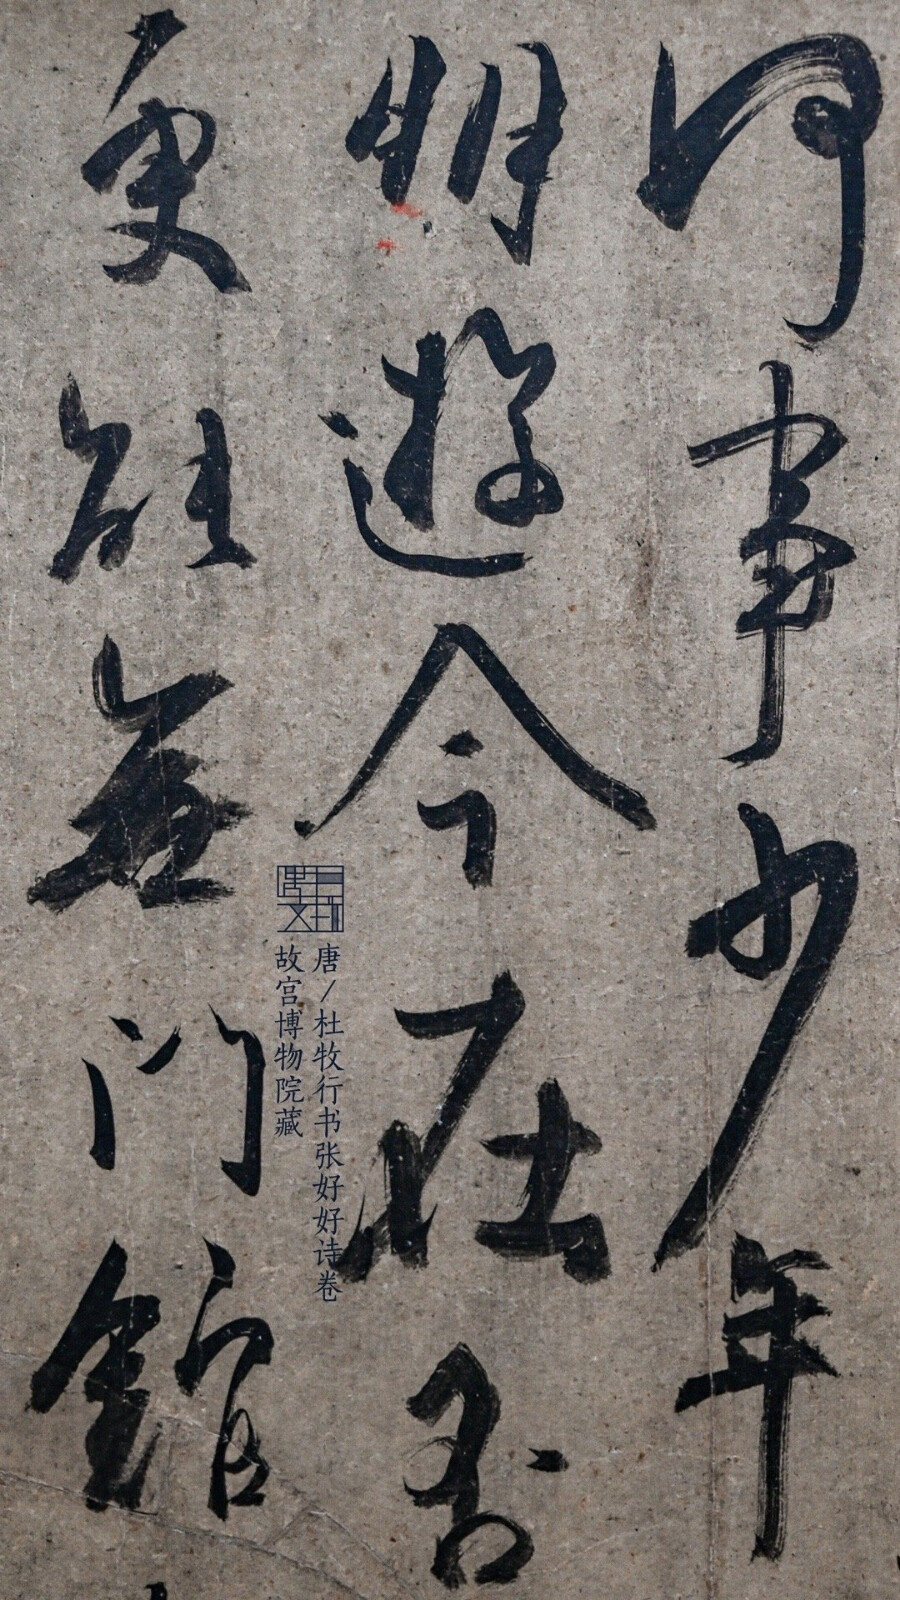 何事少年
朋遊今在否
更能無門館
唐/杜牧行书张好好诗卷
故宫博物院藏